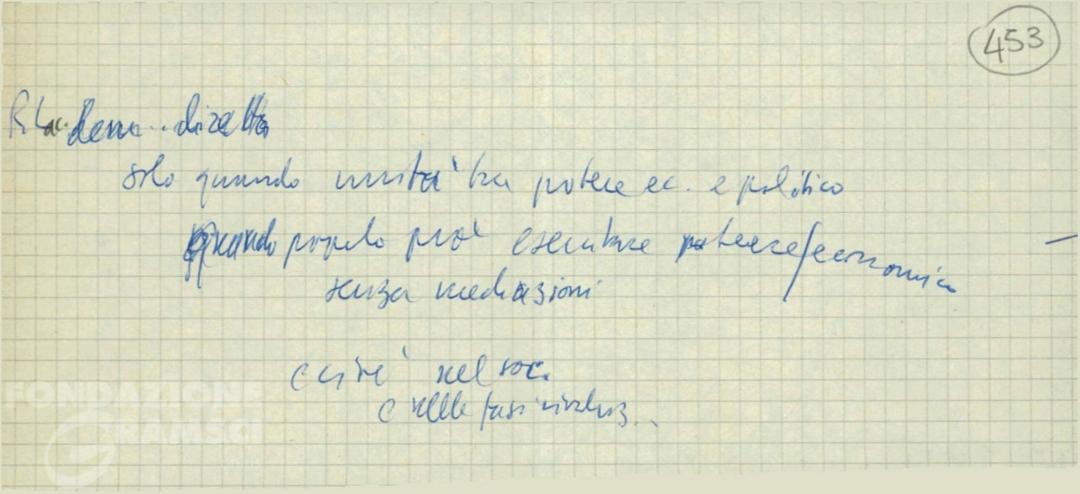 453
dem.. diretta
solo quando unità tra potere ec. e politico
quando popolo può esercitare potere/economico
senza mediazioni
e cioè nel soc.
e nelle fasi rivoluz..
FONDAZIONE
GRAMSCI